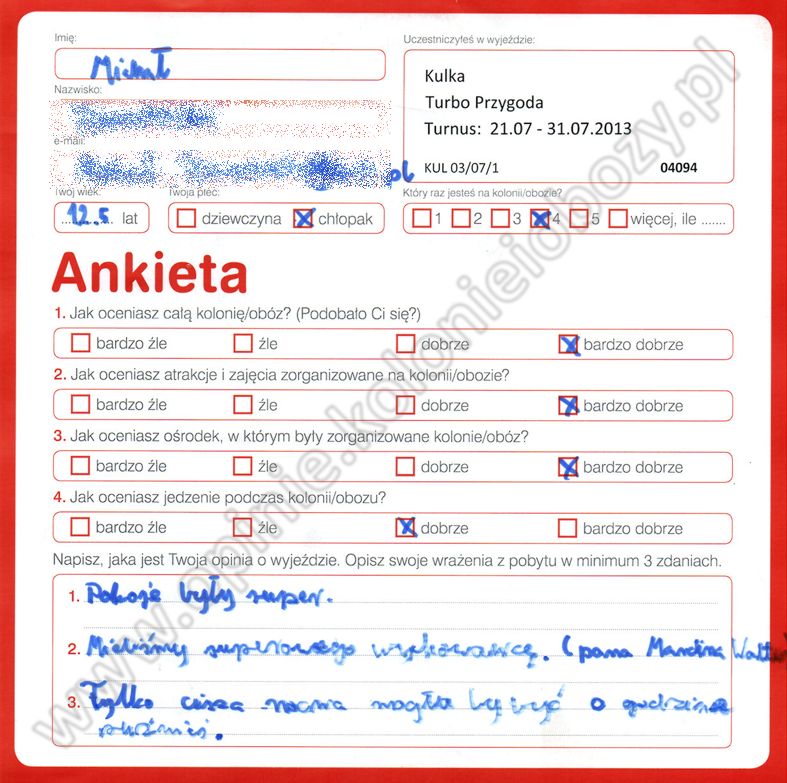 Imię:
Uczestniczyłeś w wyjeździe:
Michał
Kulka
Nazwisko:
Turbo Przygoda
Turnus: 21.07 - 31.07.2013
e-mail:
pl
KUL 03/07/1 04094
Twój wiek:
Twoja płeć:
Który raz jesteś na kolonii/obozie?
12.5 lat
dziewczyna chłopak
1 2 3 4 5 więcej, ile .......
Ankieta
1. Jak oceniasz całą kolonię/obóz? (Podobało Ci się?)
bardzo źle źle dobrze bardzo dobrze
2. Jak oceniasz atrakcje i zajęcia zorganizowane na kolonii/obozie?
bardzo źle źle dobrze bardzo dobrze
3. Jak oceniasz ośrodek, w którym były zorganizowane kolonie/obóz?
bardzo źle źle dobrze bardzo dobrze
4. Jak oceniasz jedzenie podczas kolonii/obozu?
bardzo źle źle dobrze bardzo dobrze
Napisz, jaka jest Twoja opinia o wyjeździe. Opisz swoje wrażenia z pobytu w minimum 3 zdaniach.
1. Pokoje były super.
2. Mieliśmy superowego wychowawcę. (pana Marcina
3. Tylko cisza nocna mogła by być o godzinie
później.
www.opinie.kolonieiobozy.pl